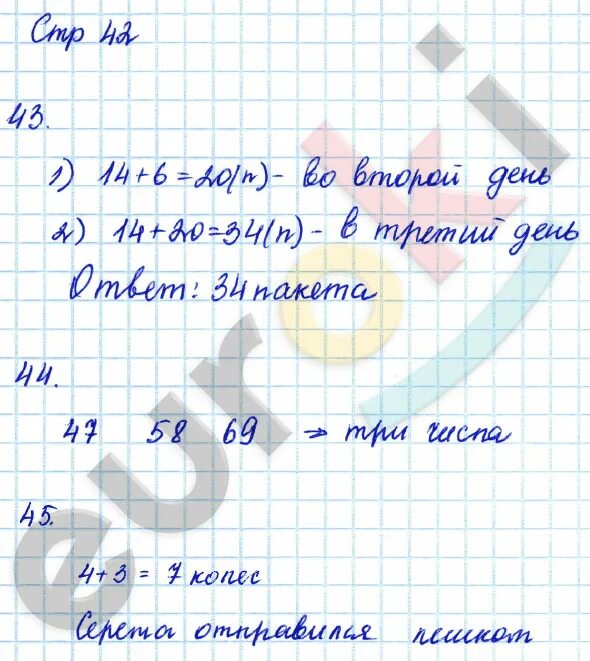 Стр 42
43.
1) 14+6=20(п)- во второй день
2) 14+20=34(п)- в третий день
Ответ: 34 пакета
44.
47 58 69 → три числа
45.
4+3 = 7 колес
Серета отправился пешком
euroki